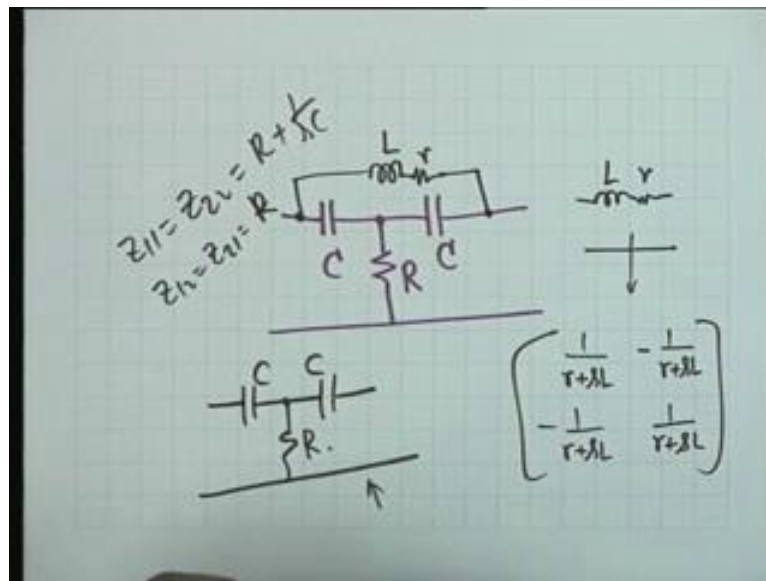 z11 = z22 = R + 1/sC
z12 = z21 = R
L r
C C
R
L r
C C
R.
1/(r+sL) - 1/(r+sL)
- 1/(r+sL) 1/(r+sL)